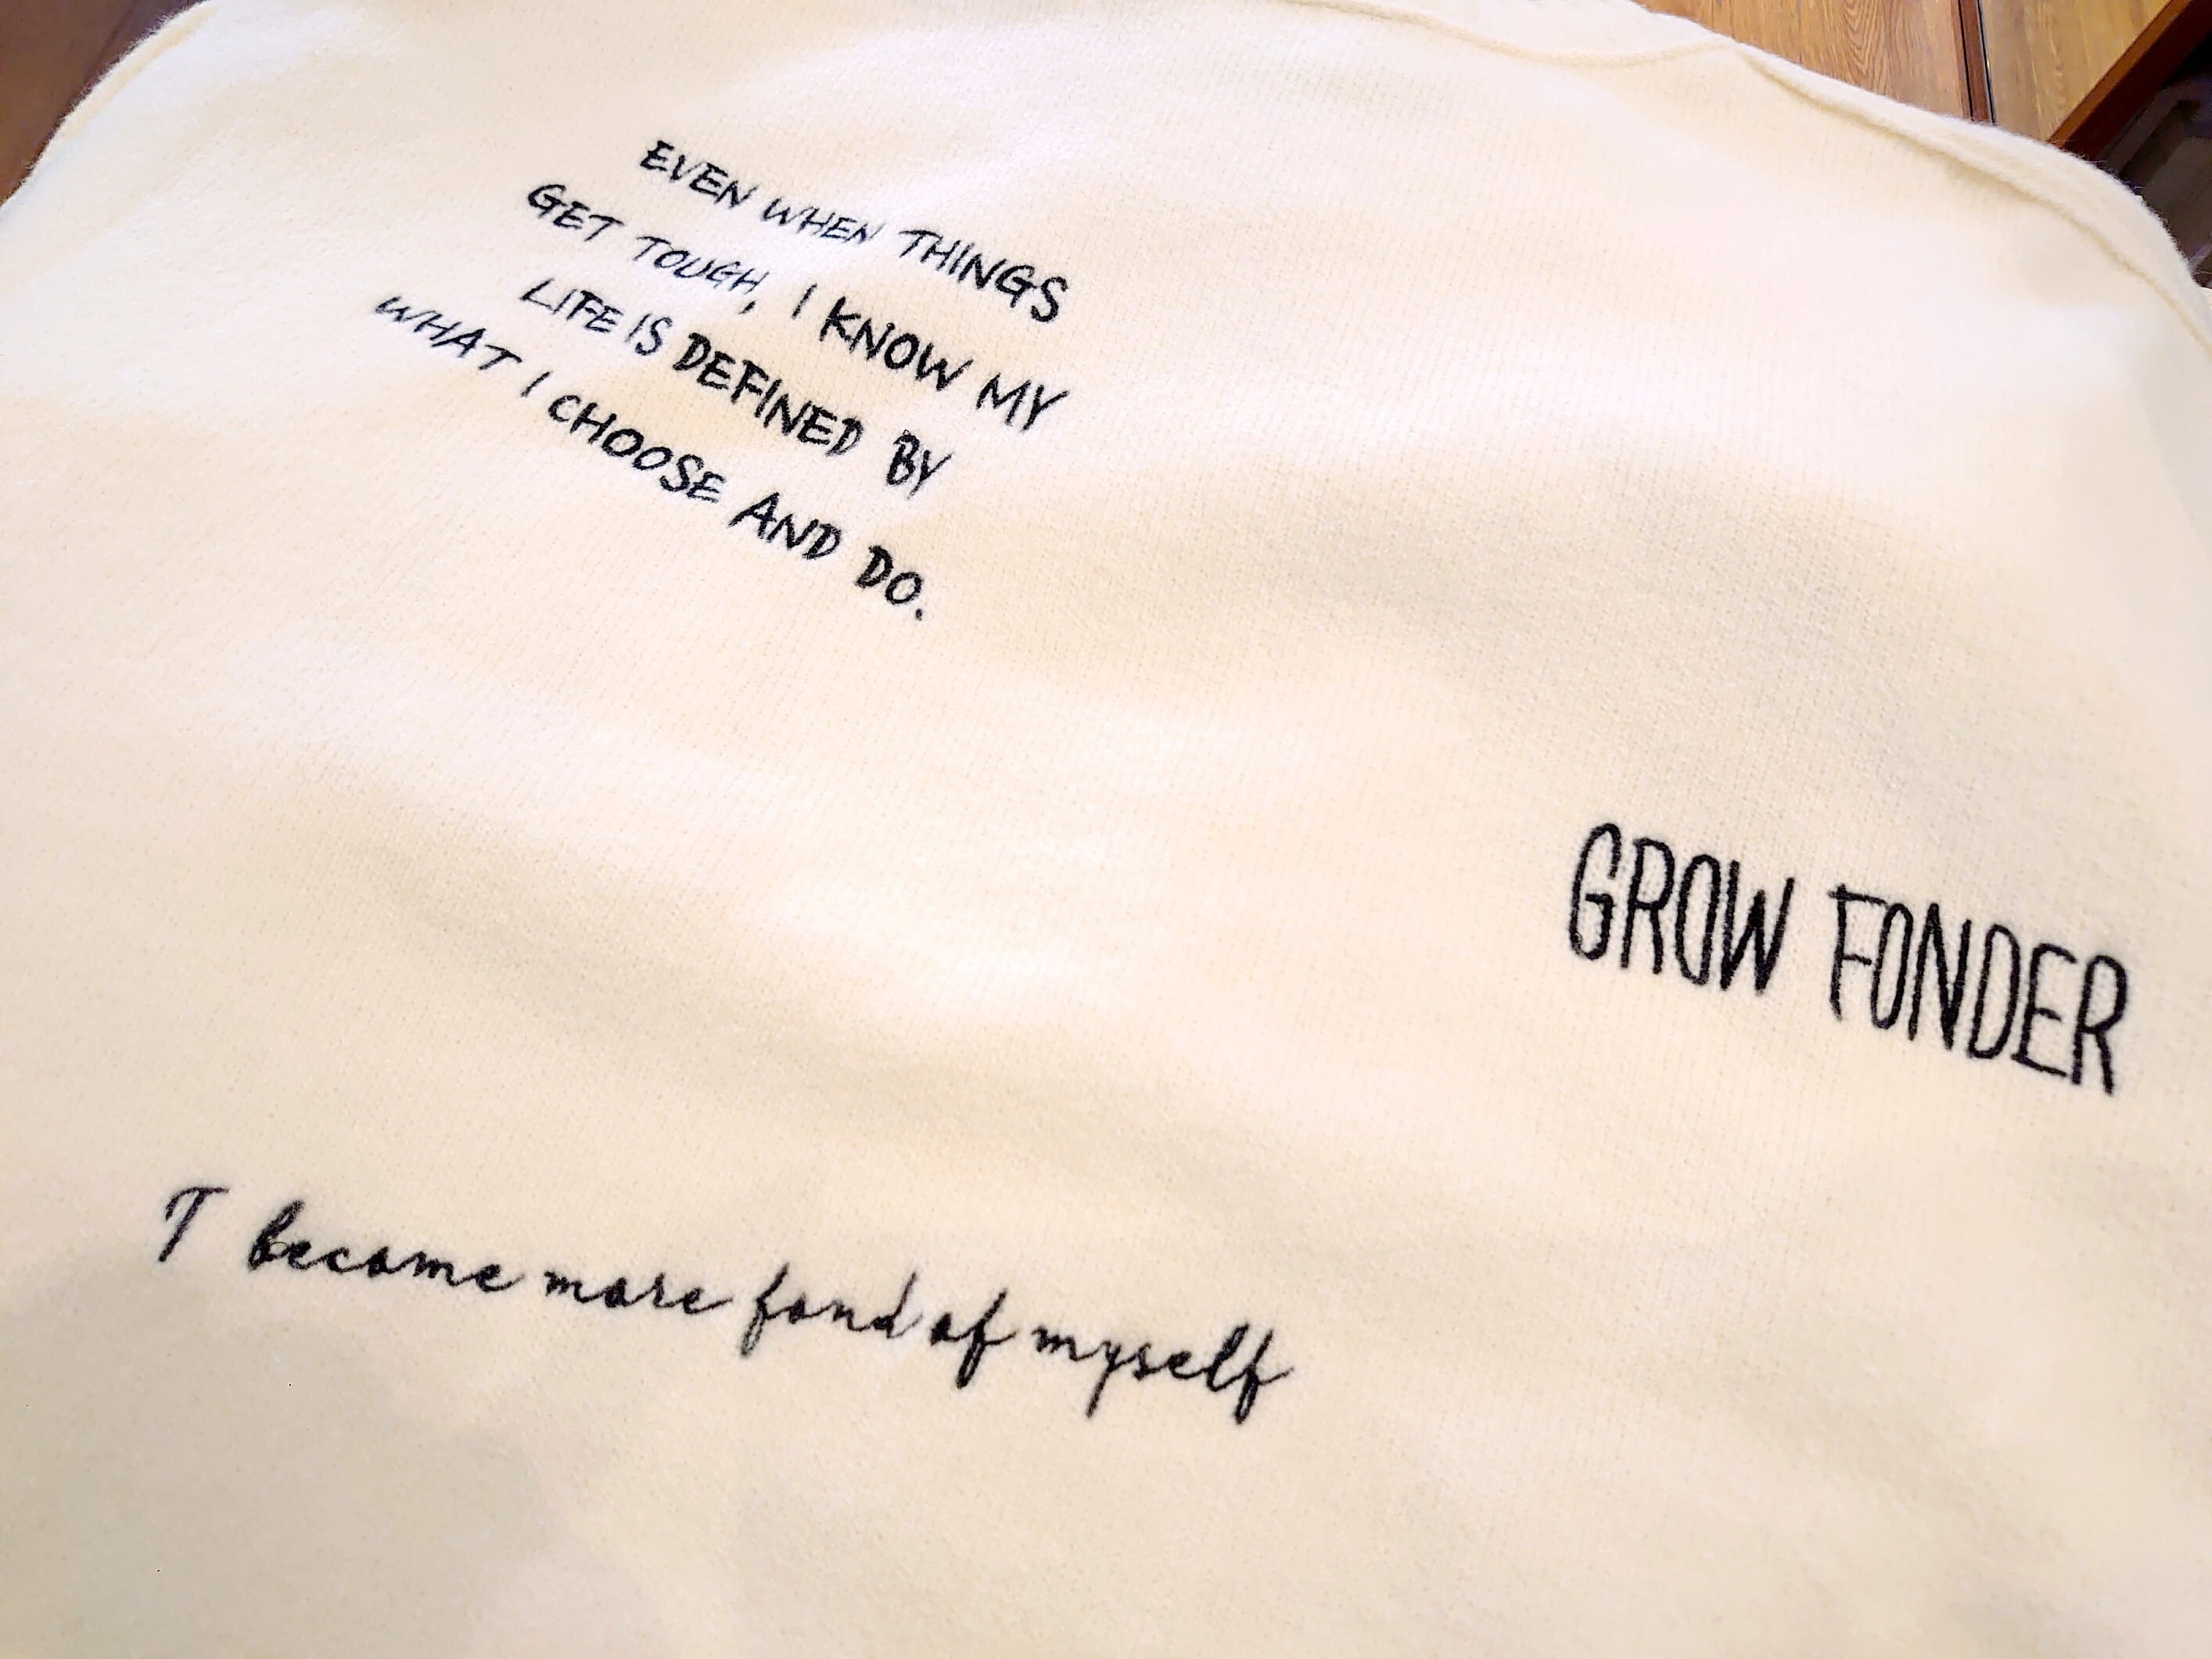 EVEN WHEN THINGS
GET TOUGH, I KNOW MY
LIFE IS DEFINED BY
WHAT I CHOOSE AND DO.
GROW FONDER
I become more fond of myself